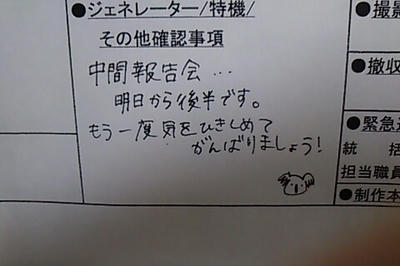 ●ジェネレーター/特機/
その他確認事項
中間報告会…
明日から後半です。
もう一度気をひきしめて
がんばりましょう!
●撮影
●撤収
●緊急連
統括
担当職員
●制作本